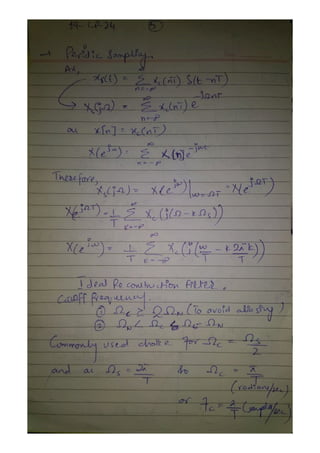 → Periodic Sampling.
As,
xₛ(t) = ∞ Σ n=-∞ x_c(nT) δ(t-nT)
Xₛ(jΩ) = ∞ Σ n=-∞ x_c(nT) e^{-jΩnT}
as x[n] = x_c(nT)
X(e^{jω}) = ∞ Σ n=-∞ x[n] e^{-jωn}
Therefore,
Xₛ(jΩ) = X(e^{jω})|_{ω=ΩT} = X(e^{jΩT})
X(e^{jΩT}) = 1/T ∞ Σ k=-∞ X_c(j(Ω-kΩₛ))
X(e^{jω}) = 1/T ∞ Σ k=-∞ X_c(j(ω/T - 2πk/T))
Ideal Reconstruction filter.
Cutoff frequency.
① Ω_c ≥ Ω_N (To avoid aliasing)
② Ω_N < Ω_c < Ωₛ-Ω_N
Commonly used choice for Ω_c = Ωₛ/2
and as Ωₛ = 2π/T so Ω_c = π/T
(radians/sec)